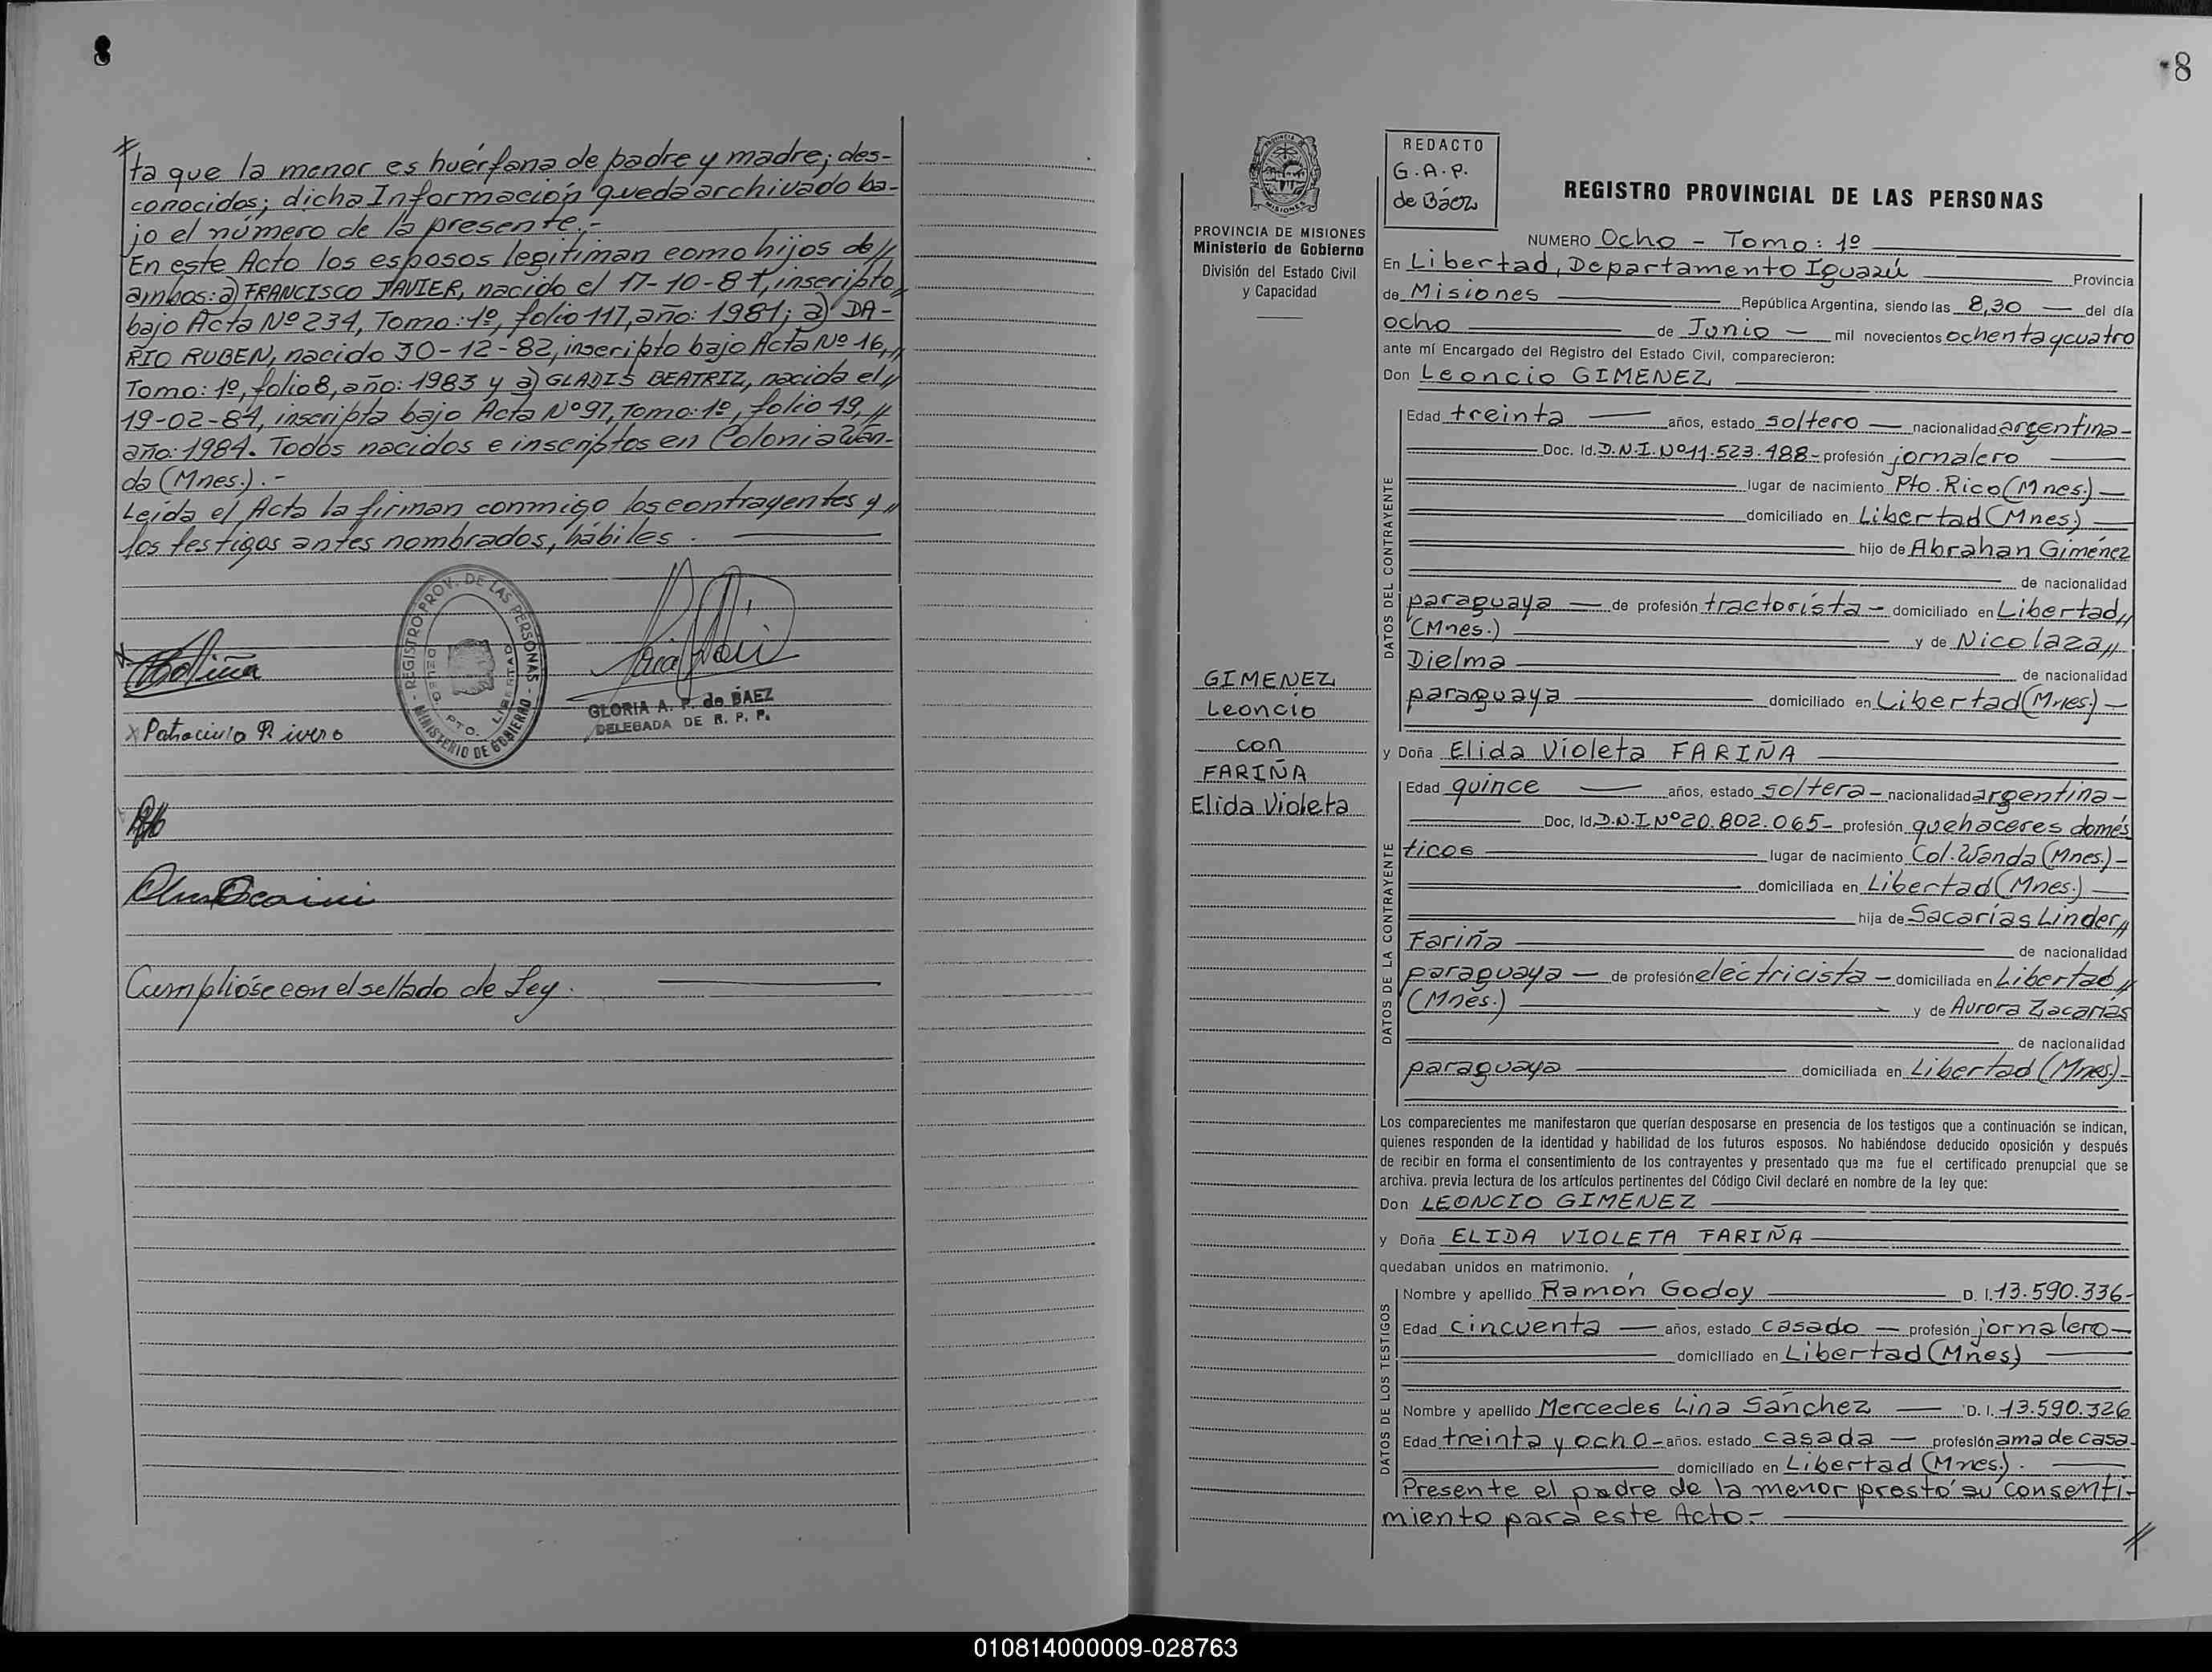 8
ta que la menor es huérfana de padre y madre; des-
conocidos; dicha Información queda archivado ba-
jo el número de la presente.-
En este Acto los esposos legitiman como hijos de //
ambos: a) FRANCISCO JAVIER, nacido el 17-10-81, inscripto //
bajo Acta Nº 234, Tomo: 1º, folio 117, año: 1981; a) DA-
RIO RUBEN, nacido 30-12-82, inscripto bajo Acta Nº 16, //
Tomo: 1º, folio 8, año: 1983 y a) GLADIS BEATRIZ, nacida el //
19-02-84, inscripta bajo Acta Nº 97, Tomo: 1º, folio 49, //
año: 1984. Todos nacidos e inscriptos en Colonia Wan-
da (Mnes.).-
Leída el Acta la firman conmigo los contrayentes y //
los testigos antes nombrados, hábiles.
REGISTRO PROV. DE LAS PERSONAS - MINISTERIO DE GOBIERNO
DELEG. PTO. LIBERTAD
GLORIA A. P. de BAEZ
DELEGADA DE R. P. P.
x Patrocinio Rivero
Cumplióse con el sellado de Ley.
8
PROVINCIA DE MISIONES
Ministerio de Gobierno
División del Estado Civil
y Capacidad
GIMENEZ
Leoncio
con
FARIÑA
Elida Violeta
REDACTO
G.A.P.
de Báez
REGISTRO PROVINCIAL DE LAS PERSONAS
NUMERO Ocho - Tomo: 1º
En Libertad, Departamento Iguazú Provincia
de Misiones República Argentina, siendo las 8,30 del día
ocho de Junio mil novecientos ochenta y cuatro
ante mí Encargado del Registro del Estado Civil, comparecieron:
Don Leoncio GIMENEZ
DATOS DEL CONTRAYENTE
Edad treinta años, estado soltero nacionalidad argentina
Doc. Id. D.N.I. Nº 11.523.488 - profesión jornalero
lugar de nacimiento Pto. Rico (Mnes.)
domiciliado en Libertad (Mnes.)
hijo de Abrahan Giménez
de nacionalidad
paraguaya de profesión tractorista - domiciliado en Libertad, //
(Mnes.) y de Nicolaza //
Dielma de nacionalidad
paraguaya domiciliado en Libertad (Mnes.)
y Doña Elida Violeta FARIÑA
DATOS DE LA CONTRAYENTE
Edad quince años, estado soltera - nacionalidad argentina
Doc. Id. D.N.I. Nº 20.802.065 - profesión quehaceres domés
ticos lugar de nacimiento Col. Wanda (Mnes.)
domiciliada en Libertad (Mnes.)
hija de Sacarías Linder //
Fariña de nacionalidad
paraguaya de profesión electricista - domiciliada en Libertad //
(Mnes.) y de Aurora Zacarías
de nacionalidad
paraguaya domiciliada en Libertad (Mnes.)
Los comparecientes me manifestaron que querían desposarse en presencia de los testigos que a continuación se indican,
quienes responden de la identidad y habilidad de los futuros esposos. No habiéndose deducido oposición y después
de recibir en forma el consentimiento de los contrayentes y presentado que me fue el certificado prenupcial que se
archiva. previa lectura de los artículos pertinentes del Código Civil declaré en nombre de la ley que:
Don LEONCIO GIMENEZ
y Doña ELIDA VIOLETA FARIÑA
quedaban unidos en matrimonio.
DATOS DE LOS TESTIGOS
Nombre y apellido Ramón Godoy D. I. 13.590.336
Edad cincuenta años, estado casado profesión jornalero
domiciliado en Libertad (Mnes)
Nombre y apellido Mercedes Lina Sánchez D. I. 13.590.326
Edad treinta y ocho años. estado casada profesión ama de casa
domiciliado en Libertad (Mnes.).
Presente el padre de la menor prestó su consenti-
miento para este Acto.-
010814000009-028763